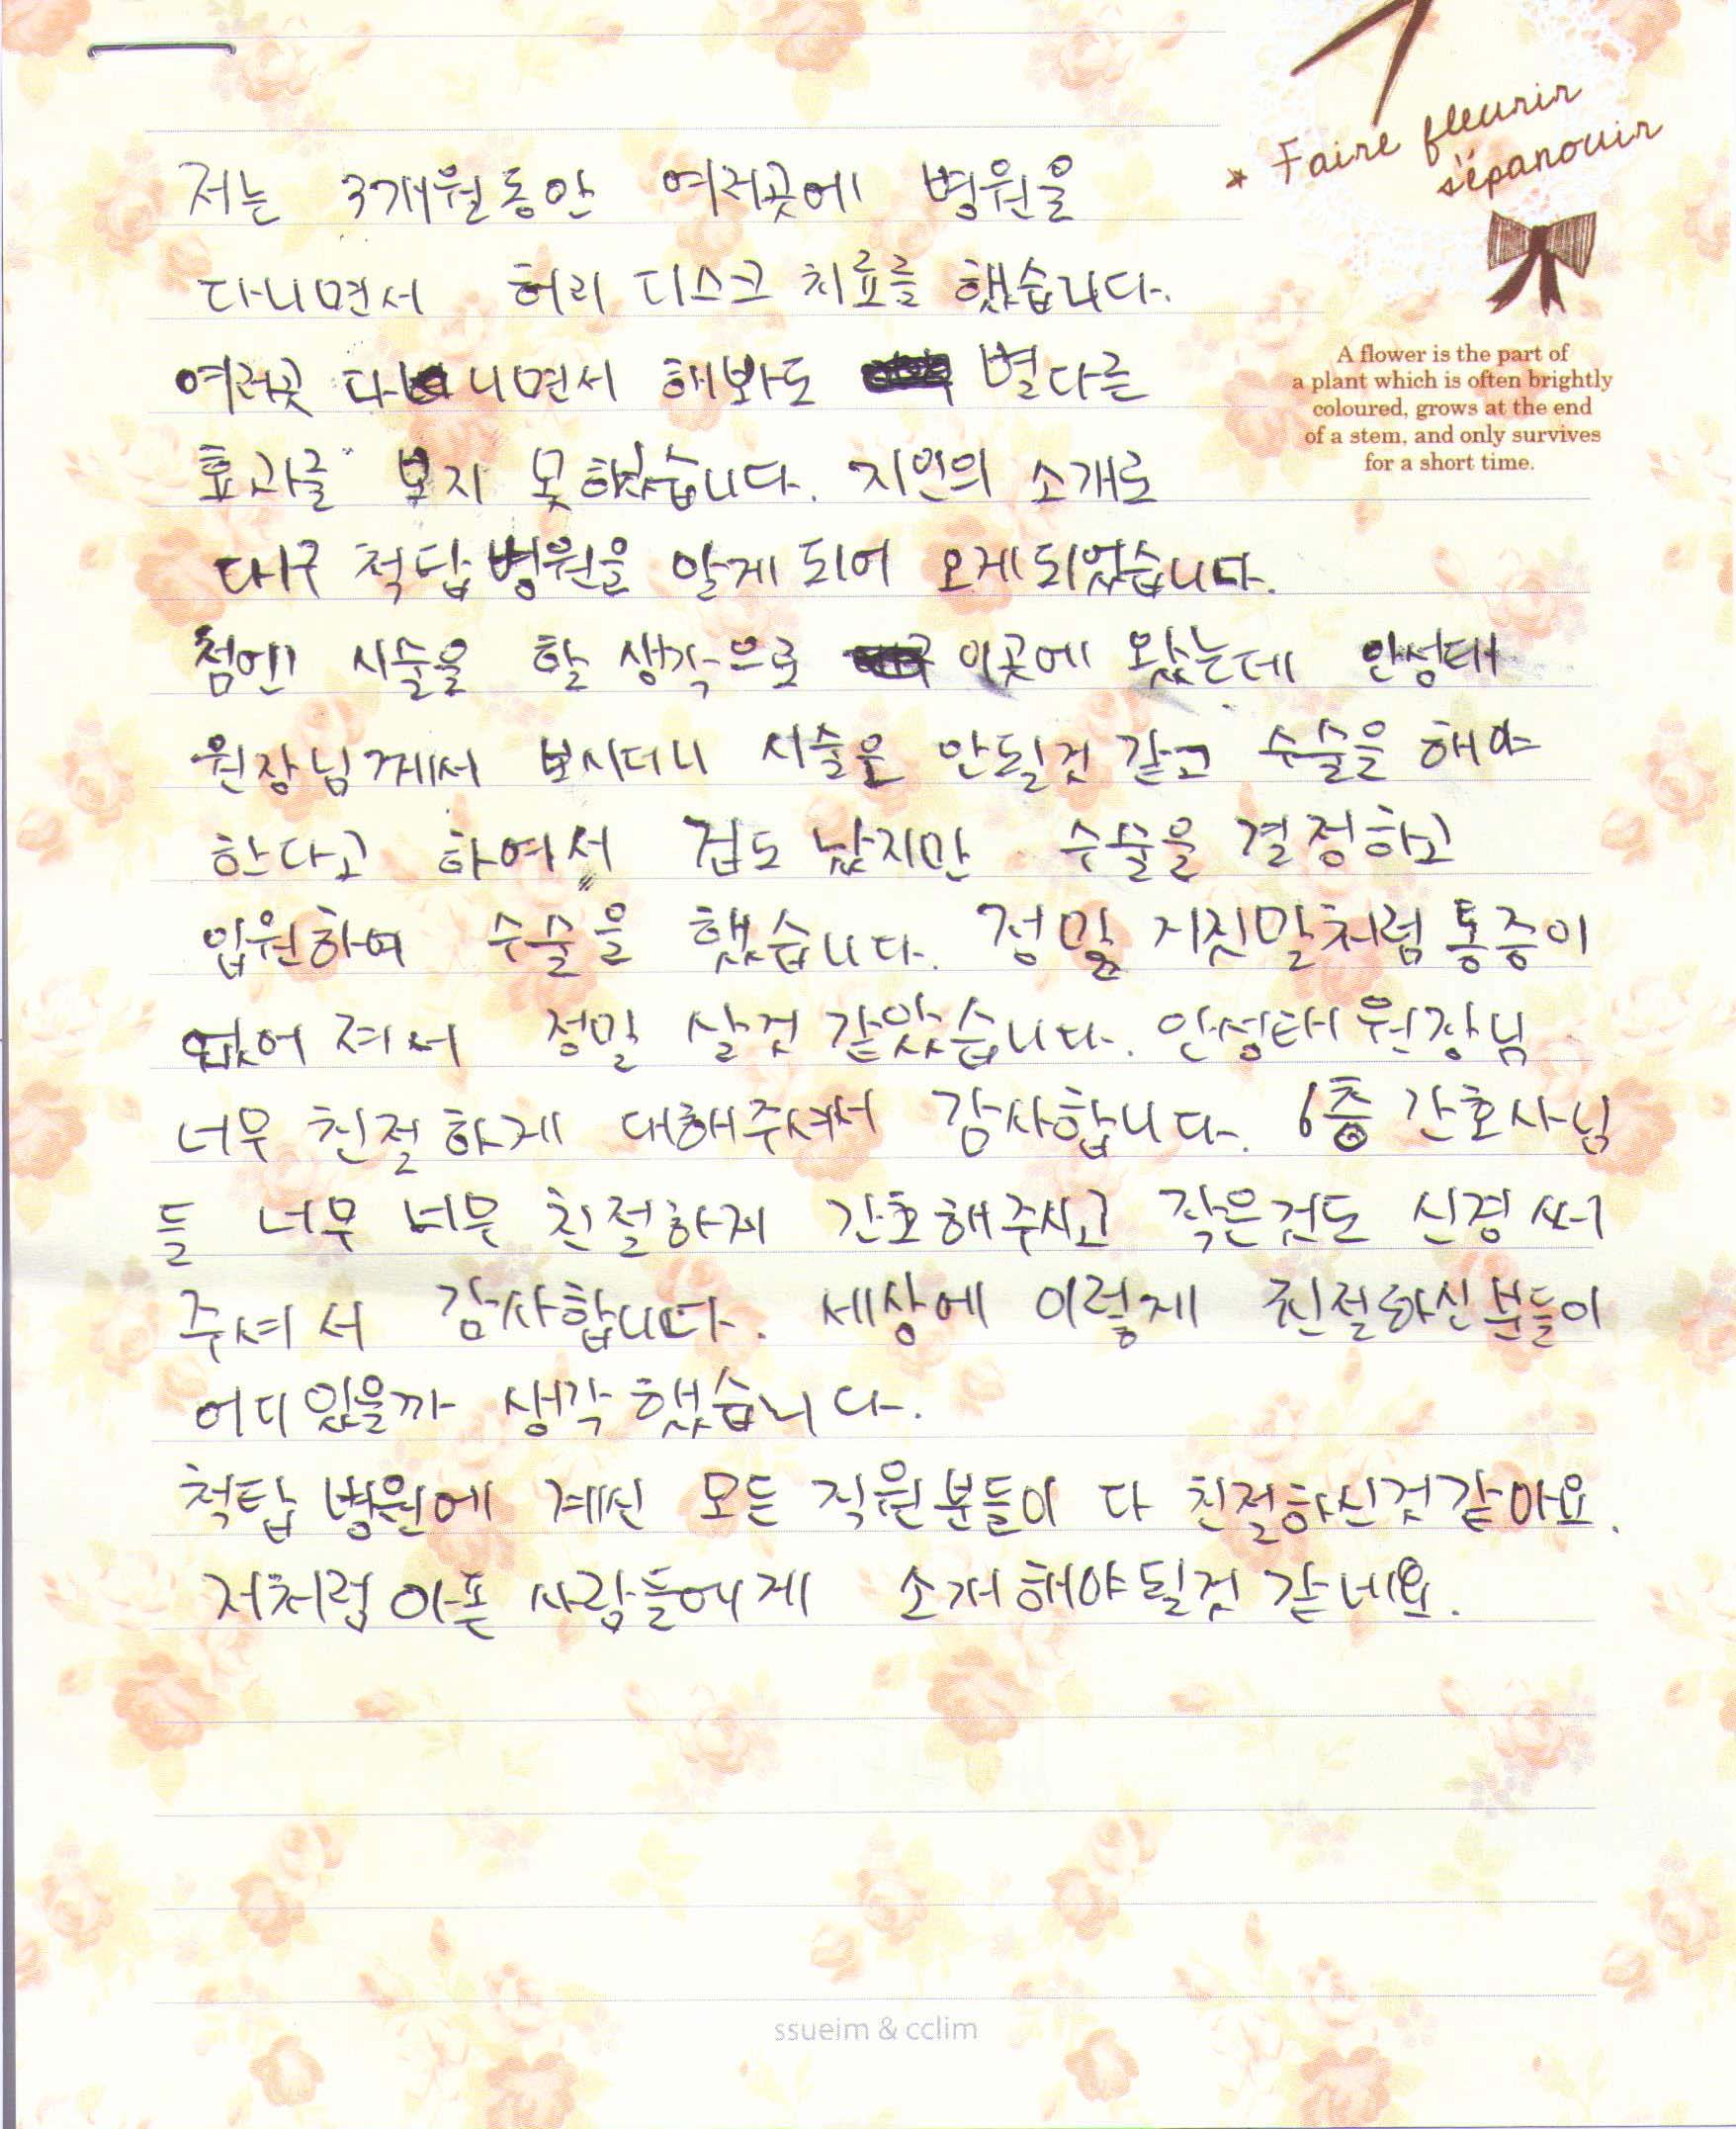 Faire fleurir
s'épanouir
A flower is the part of
a plant which is often brightly
coloured, grows at the end
of a stem, and only survives
for a short time.
저는 3개월동안 여러곳에 병원을
다니면서 허리 디스크 치료를 했습니다.
여러곳 다니면서 해봐도 별다른
효과를 보지 못했습니다. 지인의 소개로
대구 척탑병원을 알게되어 오게되었습니다.
첨엔 시술을 할 생각으로 이곳에 왔는데 안성태
원장님께서 보시더니 시술은 안될것 같고 수술을 해야
한다고 하여서 겁도 났지만 수술을 결정하고
입원하여 수술을 했습니다. 정말 거짓말처럼 통증이
없어져서 정말 살것 같았습니다. 안성태원장님
너무 친절하게 대해주셔서 감사합니다. 6층 간호사님
들 너무 너무 친절하게 간호해주시고 작은것도 신경써
주셔서 감사합니다. 세상에 이렇게 친절하신분들이
어디있을까 생각했습니다.
척탑병원에 계신 모든 직원분들이 다 친절하신것같아요.
저처럼 아픈 사람들에게 소개해야될것 같네요.
ssueim & cclim